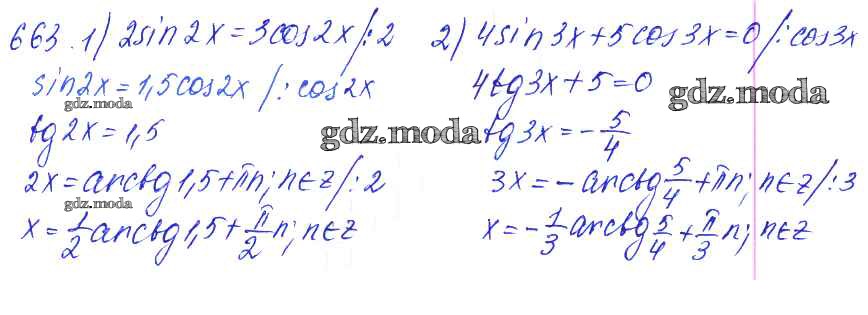 663. 1) 2sin2x=3cos2x /:2
sin2x=1,5cos2x /:cos2x
gdz.moda
tg2x=1,5
2x=arctg1,5+πn; n∈z /:2
gdz.moda
x=1/2 arctg1,5+π/2 n; n∈z
2) 4sin3x+5cos3x=0 /:cos3x
4tg3x+5=0
gdz.moda
gdz.moda
tg3x=-5/4
3x=-arctg5/4+πn; n∈z /:3
x=-1/3 arctg5/4+π/3 n; n∈z